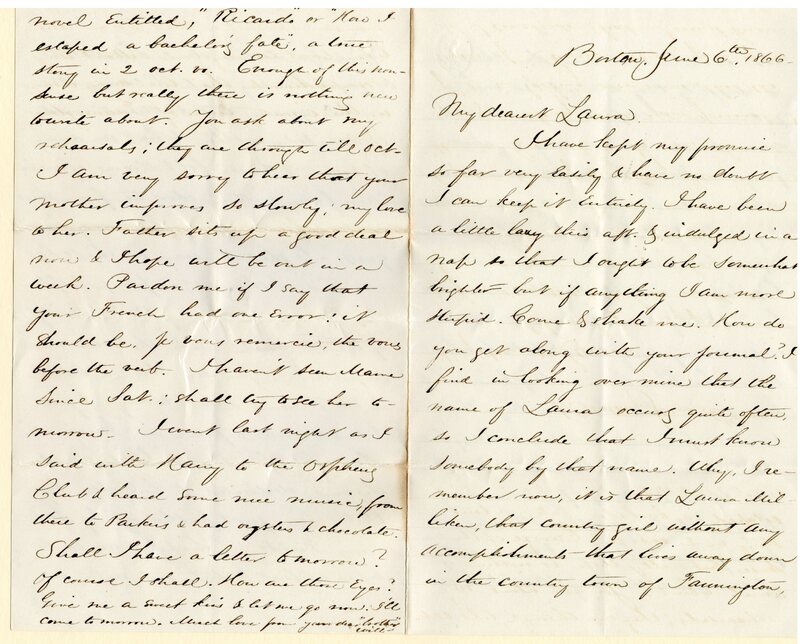 Boston, June 6th 1866.
My dearest Laura.
I have kept my promise
so far very Easily & have no doubt
I can keep it Entirely. I have been
a little lazy this aft. & indulged in a
nap so that I ought to be somewhat
brighter but if anything I am more
stupid. Come & shake me. How do
you get along with your journal? I
find in looking over mine that the
name of Laura occurs quite often,
so I conclude that I must know
somebody by that name. Why, I re-
member now, it is that Laura Mil-
liken, that country girl without any
accomplishments that lives away down
in the country town of Farmington,
novel Entitled, "Ricardo" or "How I
escaped a bachelor's fate", a true
story in 2 oct. vo. Enough of this non-
sense but really there is nothing new
to write about. You ask about my
rehearsals; they are through till Oct.
I am very sorry to hear that your
mother improves so slowly; my love
to her. Father sits up a good deal
now & I hope will be out in a
week. Pardon me if I say that
your French had one Error: it
should be, je vous remercie, the vous
before the verb. I haven't seen Mame
since Sat.; shall try to see her to-
morrow. I went last night as I
said with Harry to the Orpheus
Club & heard some nice music, from
there to Parker's & had oysters & chocolate.
Shall I have a letter tomorrow?
Of course I shall. How are those Eyes?
Give me a sweet kiss & let me go now. I'll
come tomorrow. Much love from your dear "brother"
Will